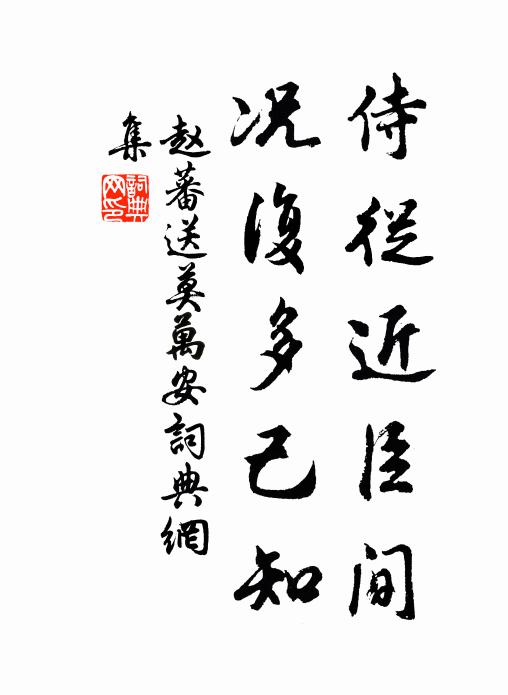 侍從近臣间
况復多己知
赵蕃送莫萬安詞典網
集
詞典
网印